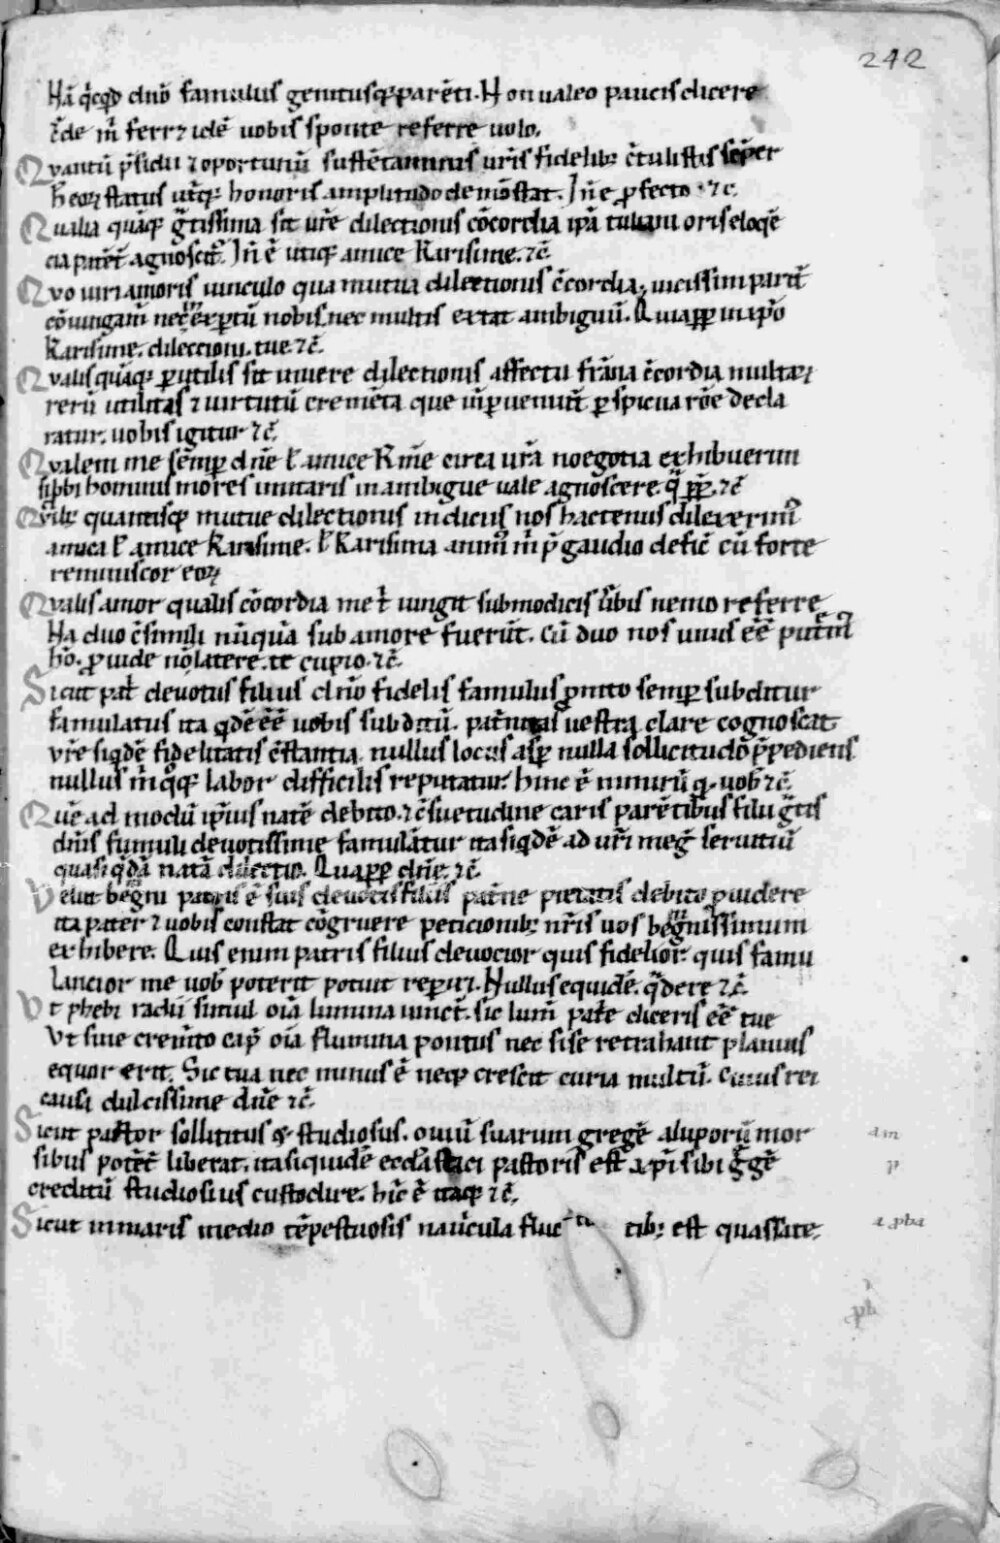 242
Nā q̄cq̄d dn̄o famulus genitusq; parēti. Non ualeo paucis dicere
īde m̄ ferr ⁊ idē uobis sponte referre uolo.
Quantū p̄sidii ⁊ oportunū sustētaminis ur̄is fidelib; c̄tulistis sēper
heoꝝ status utiq; honoris amplitudo demōstat. Jn̄ e ꝓfecto. ⁊c̄.
Qualia quāq; gr̄tissima sit ur̄e dilectionis cōcordia ip̄a tuiani oris eloqē
cia patēt agnoscit. Jn̄ ē utiq; amice karisime. ⁊c̄
Quo uiri amoris uinculo qua mutua dilectionis c̄cordia, uicissim parit̄
cōiungam̄ nec expertū nobis nec multis extat ambiguū. Quaꝓꝑ in ip̄o
karisime. dilectioni. tue. ⁊c̄.
Qualis quāq; ꝑutilis sit uiuere dilectionis affectu frāna c̄cordia multaꝝ
rerū utilitas ⁊ uirtutū cremēta que in ꝑueniūt ꝑspicua rōe decla
ratur. uobis igitur ⁊c̄.
Qualem me sēmꝑ dn̄e ł amice kr̄me circa ur̄a noegotia exhibuerim
si ꝓbi hominis mores imitaris inambigue uale agnoscere. q̄ ꝓꝑ. ⁊c̄
quantisq; mutue dilectionis indiciis nos hactenus dilexerim̄
amica ł amice karisime. ł karisima anim̄ m̄ p̄ gaudio defic̄ cū forte
reminiscor eoꝝ
Qualis amor qualis cōcordia me t̄ iungit submodicis ur̄bis nemo referre
Na duo c̄simili nūquā sub amore fuerūt. cū duo nos unus eē̄ putem̄
ho. ꝓuide nō latere te cupio. ⁊c̄.
Sicut pat̄ deuotus filius dn̄o fidelis famulus ꝓnito semꝑ subditur
famulatus ita qdē eē̄ uobis subditū. pat̄nitas uestra clare cognoscat
ur̄e siqdē fidelitatis c̄stantia. nullus locus asꝑ nulla sollicitudo p̄pediens
nullus m̄ q̄q; labor difficilis reputatur. hinc ē nimirū q. uob̄ ⁊c̄.
Quē ad modū ip̄ius natē debito. ⁊ c̄suetudine caris parētibus filii gr̄tis
dn̄is fumuli deuotissime famulātur ita siqdē ad ur̄i meḡ seruitiū
quasi qdā natā dilectio. Quaꝓꝑ dn̄e. ⁊c̄
Velut begni patris ē suis deuotis filiis pat̄ne pietatis debito ꝓuidere
ita pater ⁊ uobis constat cōgruere peticionib; nr̄is uos begnissimum
exhibere. Quis enim patris filius deuocior quis fidelior. quis famu
lancior me uob̄ poterit potuit reꝑiri. Nullus equidē. q̄dere ⁊c̄
Vt phebi radii simul oīa lumina uincūt. sic lum̄ pat̄e diceris eē̄ tue
Vt sine cremīto cap̄ oīa flumina pontus nec sise retrahant planius
equor erit. Sic tua nec minus ē neq; crescit curia multū. cuius rei
causi dulcissime dn̄e ⁊c̄.
Sicut pastor sollititus & studiosus. ouiū suarum gregē a luporū mor
sibus potēt̄ liberat. ita siquidē eccl̄astici pastoris est a p̄i sibi gg̃ē
creditū studiosius custodire. hīc ē itaq; ⁊c̄.
Sicut inmaris medio tēpestuosis nauicula fluctib; est quassate;